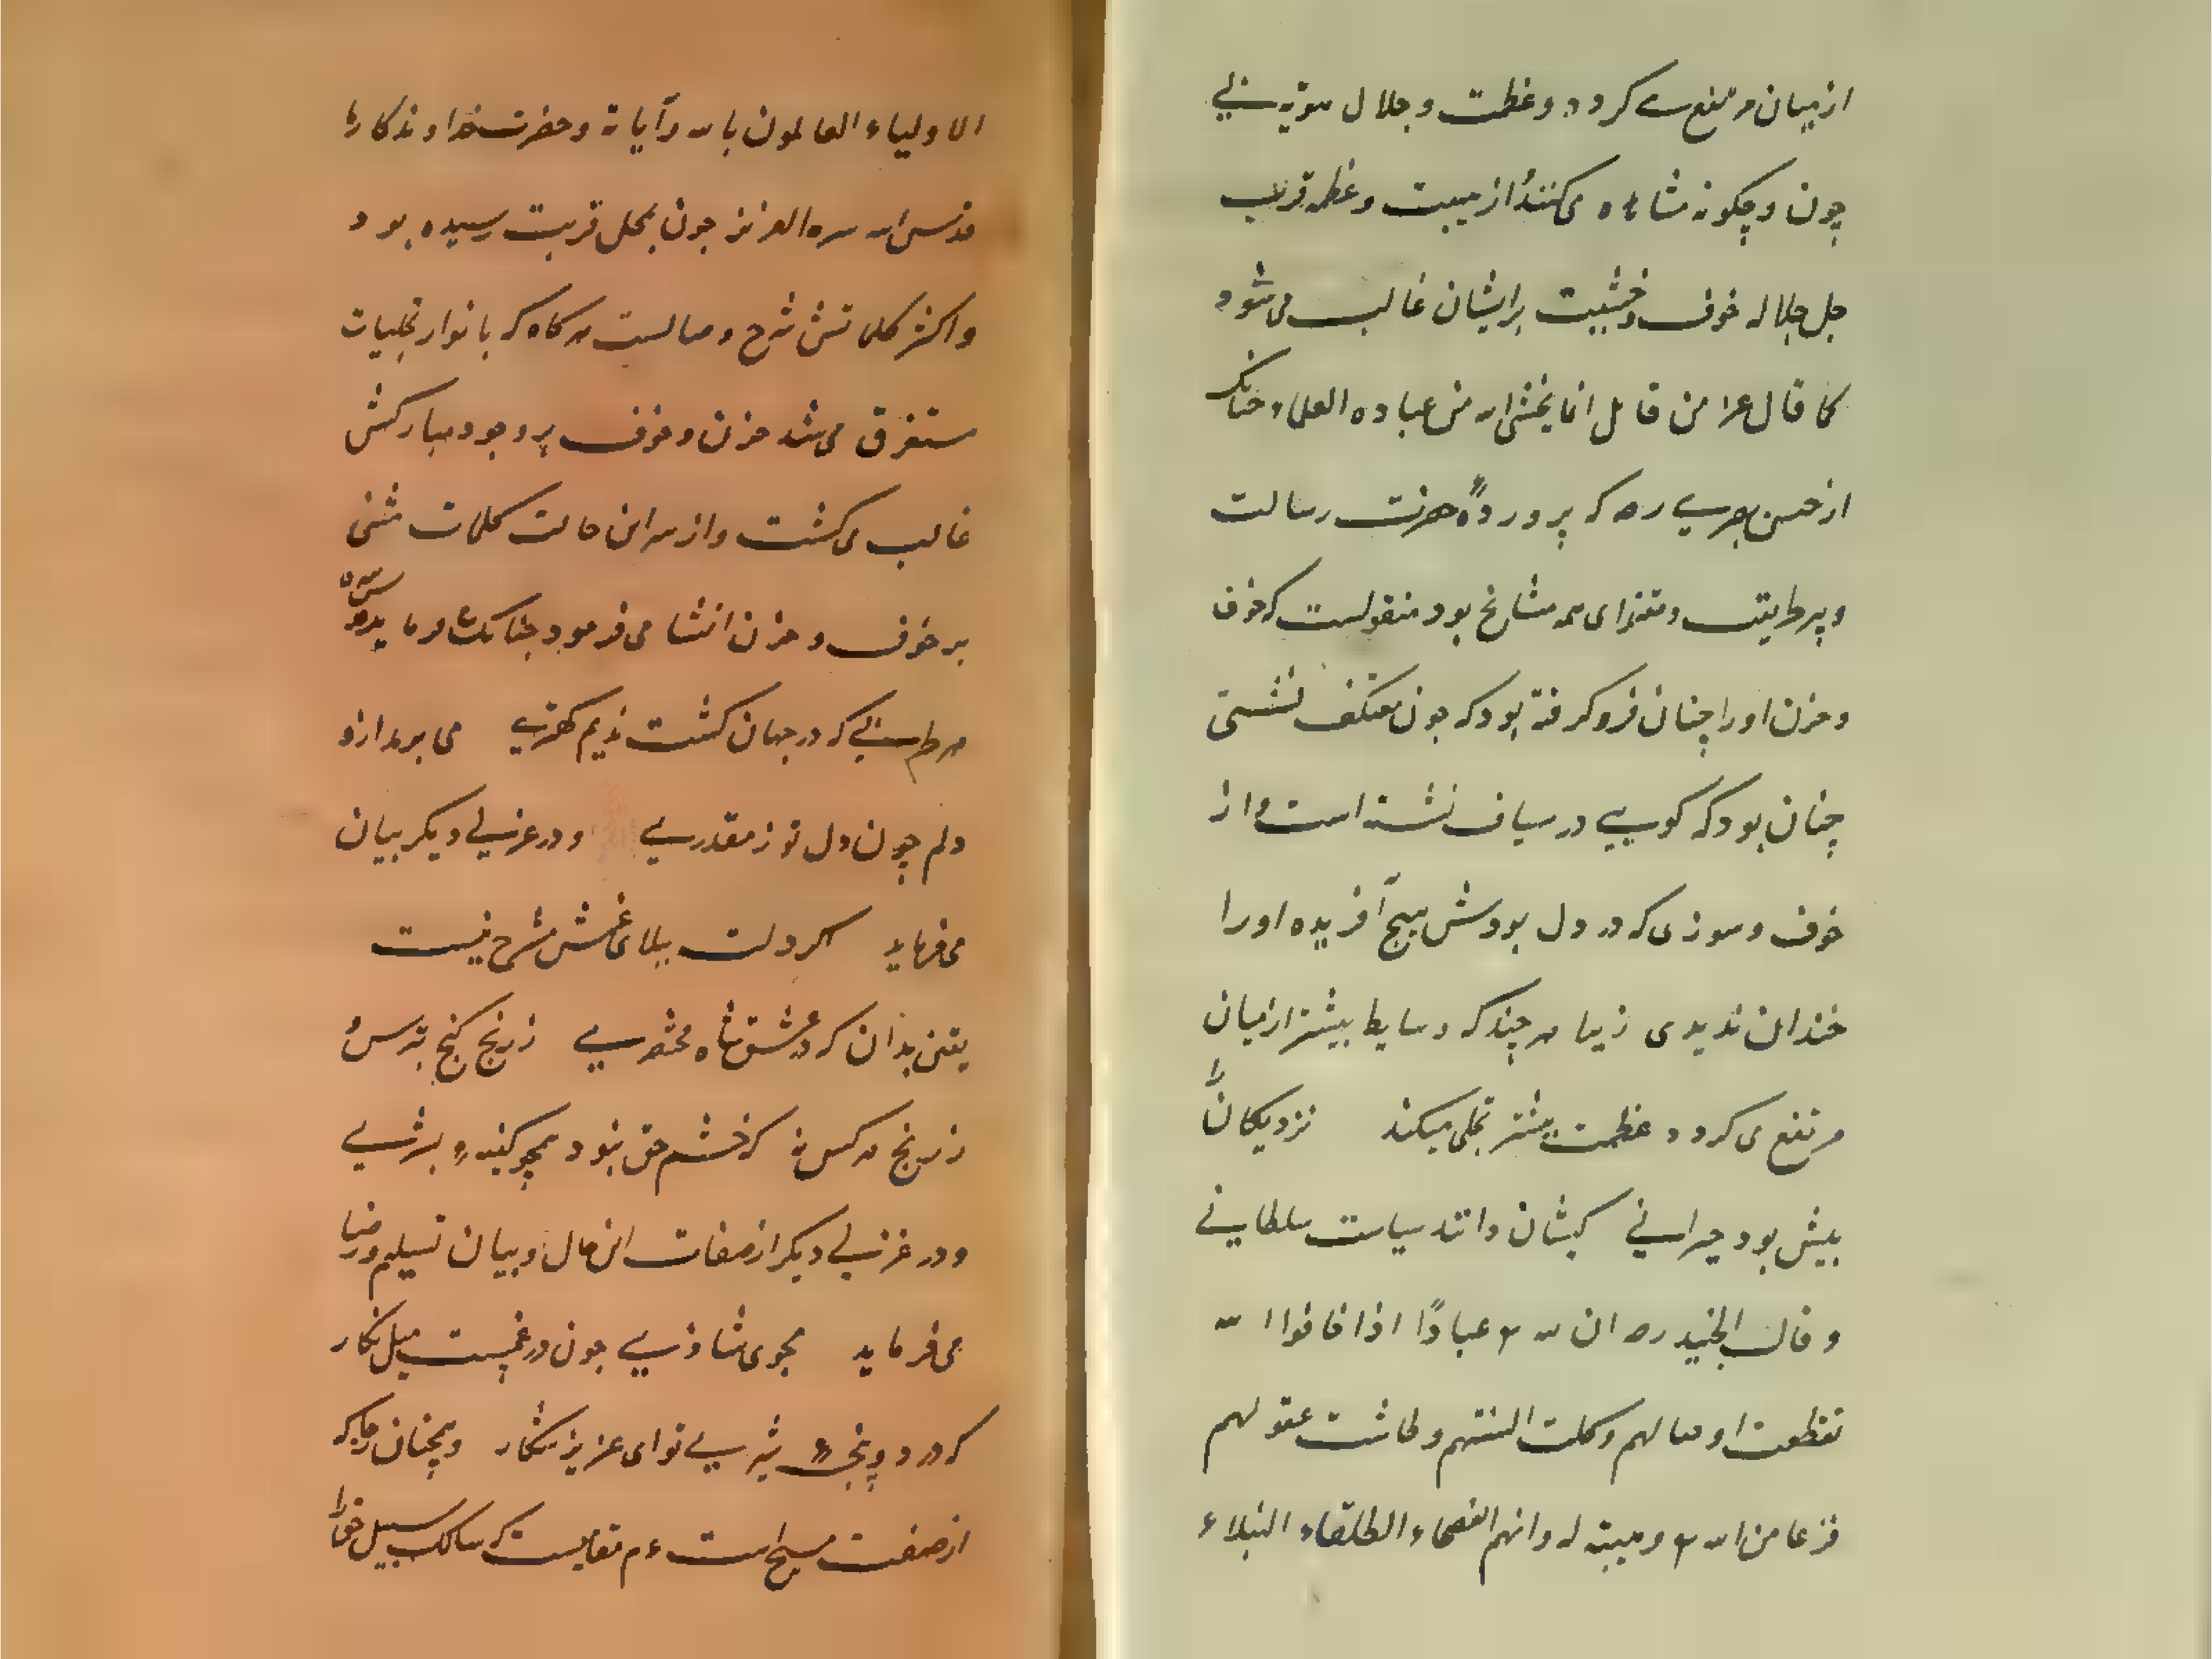 از میان مرتفع می کردد وعظمت وجلال هویه بی
چون وچکونه مشاهده می کنند از هیبت وعظمه قربت
جل جلاله خوف وخشیت برایشان غالب می شود
کما قال عز من قایل انما یخشی الله من عباده العلماء چنانک
از حسن بصری رحه که پرورده حضرت رسالت
وپیر طریقت ومقتدای همه مشایخ بود منقولست که خوف
وحزن اورا چنان فرو کرفته بود که چون معتکف نشستی
چنان بود که کویی در سیاف نشسته است واز
خوف وسوزی که در دل بودش هیچ آفریده اورا
خندان ندیدی زیرا هر چند که وسایط بیشتر از میان
مرتفع می کردد عظمت بیشتر تجلی میکند نزدیکان را
بیش بود حیرانی کیشان دانند سیاست سلطانی
وقال الجنید رحه ان لله تع عبادًا اذا خافوا الله
تقطعت اوصالهم وکلت السنتهم وطاشت عقولهم
فزعا من الله تع وهیبته له وانهم الفصحاء الطلقاء النبلاء
الاولیاء العالمون بالله وآیاته وحضرت خداوندکار ما
قدس الله سره العزیز چون بمحل قربت رسیده بود
واکثر کلماتش شرح وصالست هر کاه که بانوار تجلیات
مستغرق می شد حزن وخوف بر وجود مبارکش
غالب می کشت واز سر این حالت کلمات مبنی
بر خوف وحزن انشا می فرمود چنانک می فرماید
هر طربی که در جهان کشت ندیم کهتری می برمد ازو
دلم چون دل تو ز مقدری ودر غزلی دیکر بیان
می فرماید اکر دلت ببلای غمش مشرح نیست
یقین بدان که در عشق شاه مختصری ز رنج کنج بترس و
ز رنج هر کس نه که خشم حق نبود همچو کینه بشری
ودر غزلی دیکر از صفات این حال وبیان تسلیم ورضا
می فرماید مجوی شادی چون در غمست میل نکار
که در دو پنجه شیری تو ای عزیز شکار وهمچنان
از صفت مسیح است عم مقامیست که سالک سبیل حق را